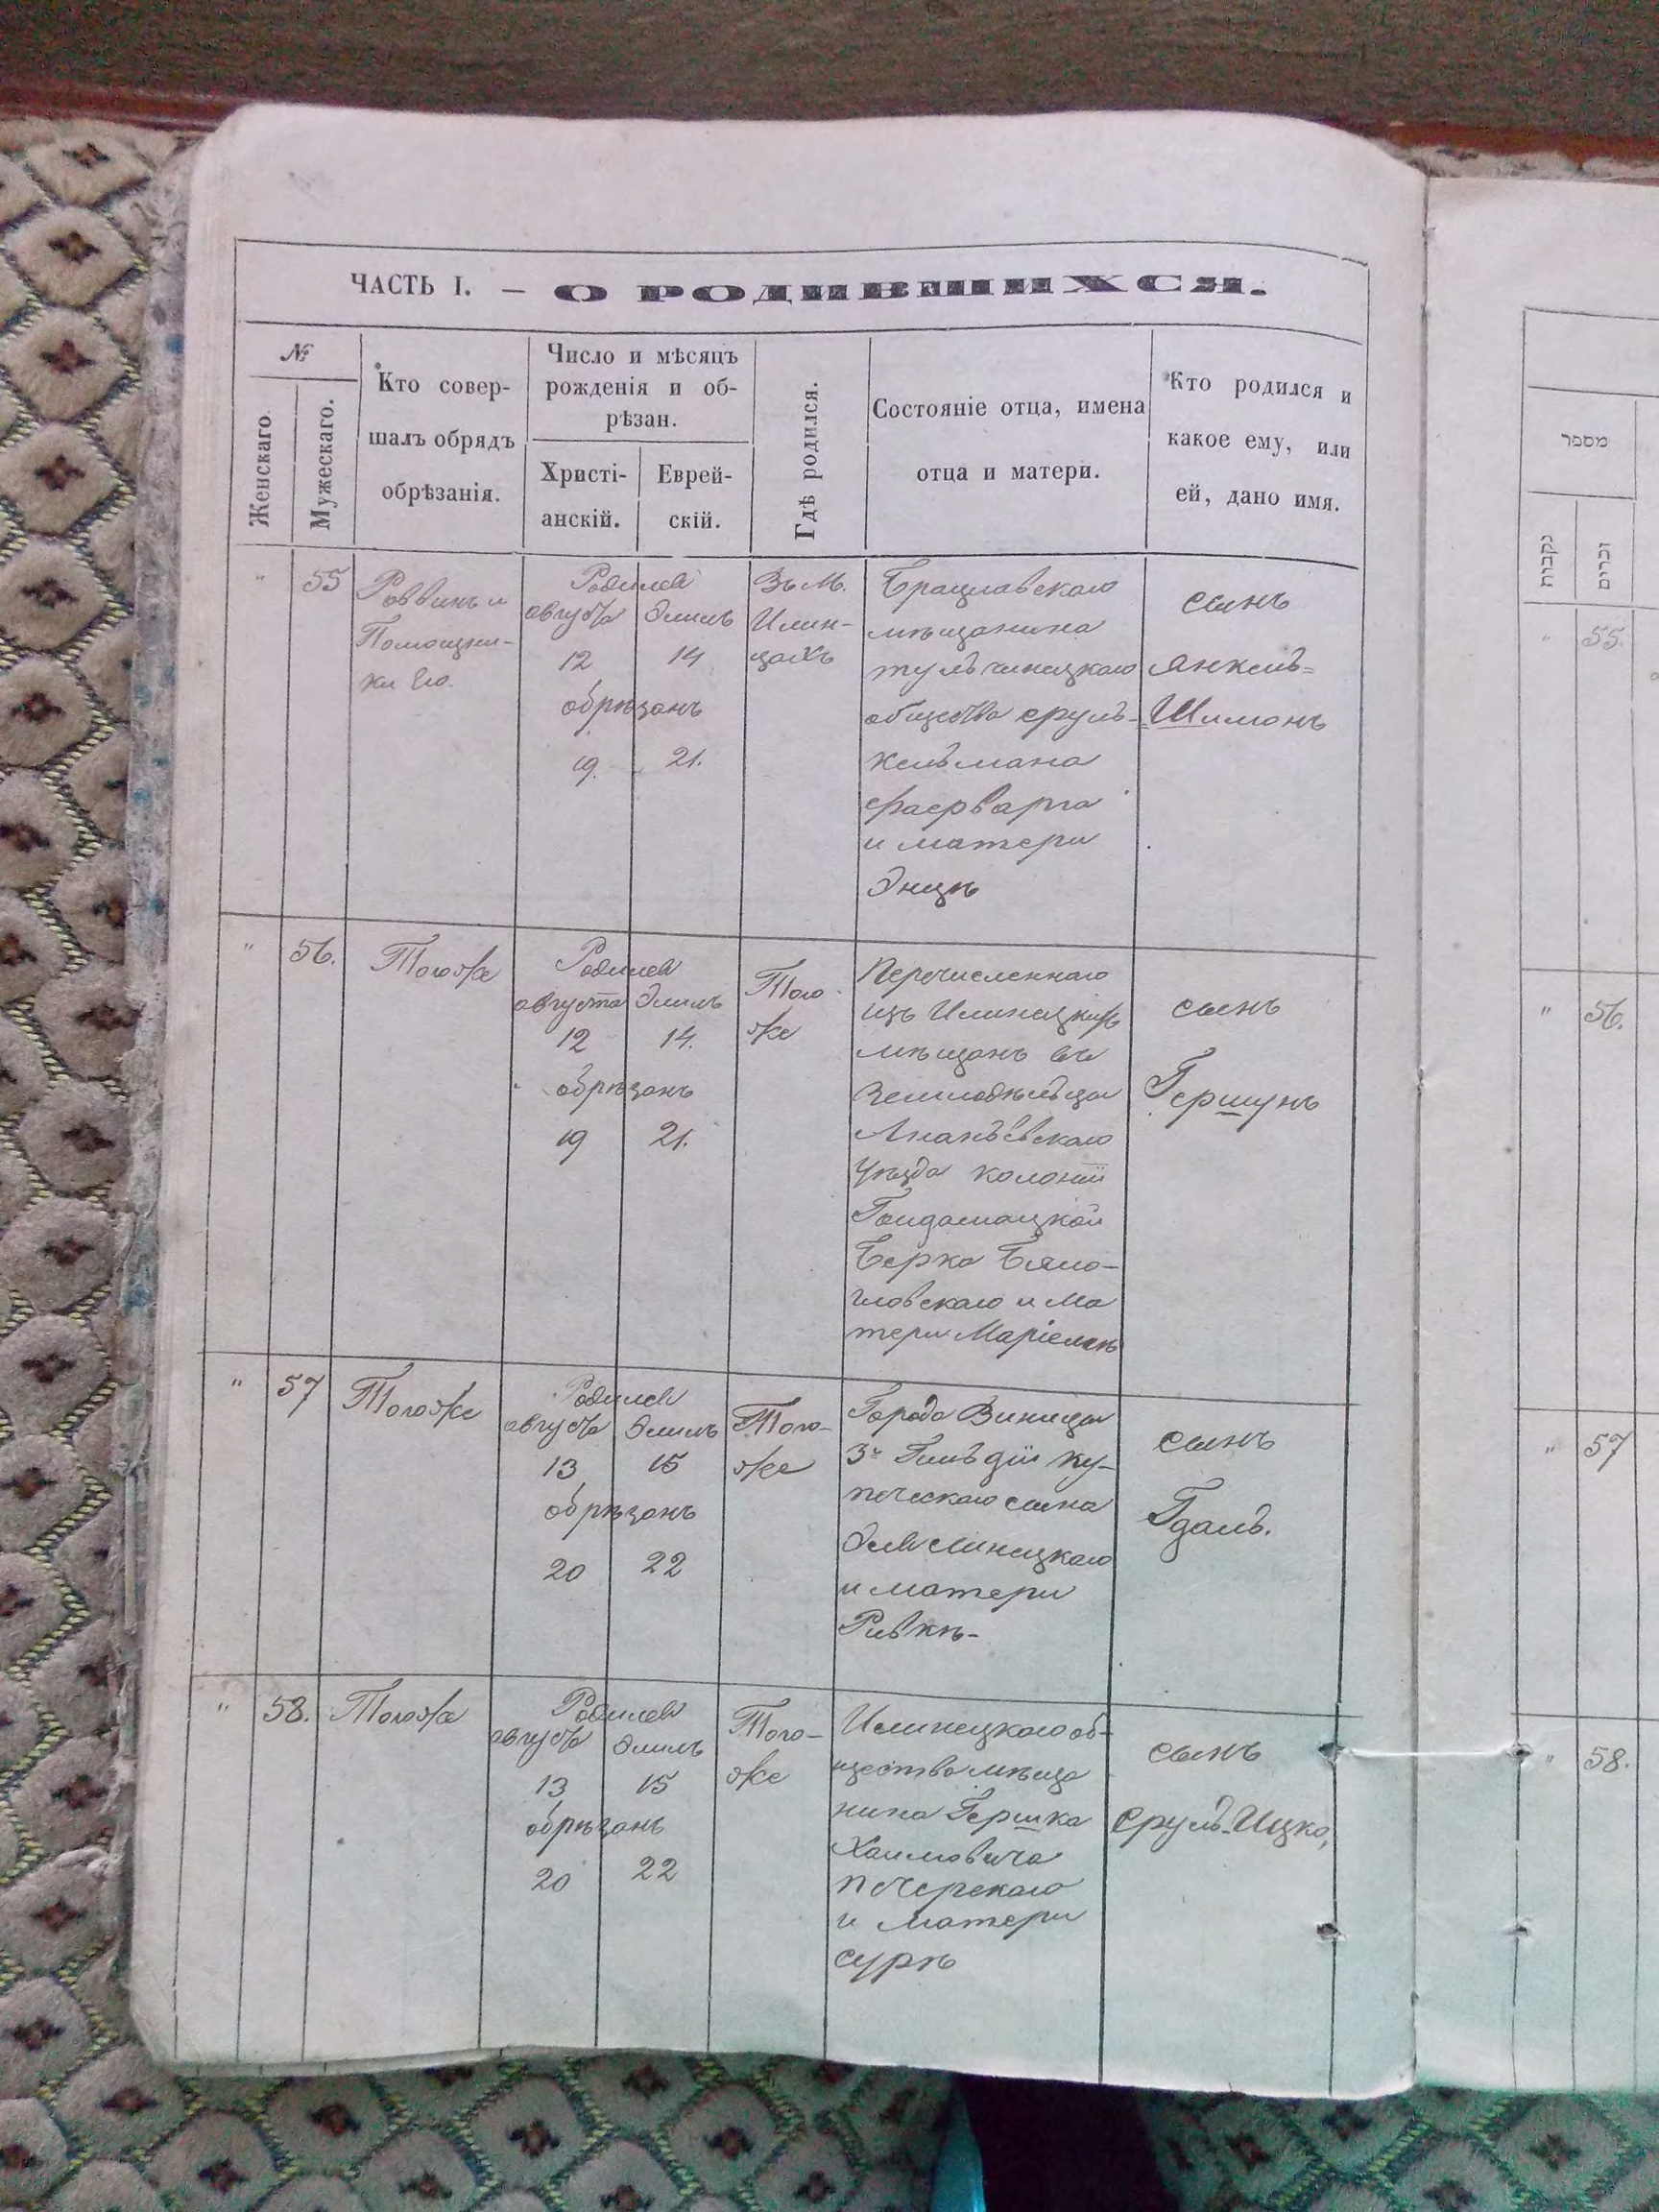 ЧАСТЬ I. — О РОДИВШИХСЯ.
№
Женскаго.
Мужескаго.
Кто совер-
шалъ обрядъ
обрѣзанія.
Число и мѣсяцъ
рожденія и об-
рѣзан.
Христі-
анскій.
Еврей-
скій.
Гдѣ родился.
Состояніе отца, имена
отца и матери.
Кто родился и
какое ему, или
ей, дано имя.
"
55
Раввинъ и
Помощни-
ки Его.
Родился
августа Элилъ
12 14
обрѣзанъ
19. 21.
Въ М.
Илин-
цахъ
Брацлавскаго
мѣщанина
тульчинецкаго
общества Сруль-
Кельмана
Фаерварга
и матери
Энцѣ
сынъ
Янкель-
Шимонъ
"
56.
Тогоже
Родился
августа Элилъ
12 14.
обрѣзанъ
19 21.
Того-
же
Перечисленнаго
изъ Илинецкихъ
мѣщанъ въ
Земледѣльца
Ананьевскаго
уѣзда колоніи
Гайдамацкой
Берка Бяло-
гловскаго и Ма
тери Маріемѣ
сынъ
Гершунъ
"
57
Тогоже
Родился
августа Элилъ
13 15
обрѣзанъ
20 22
Того-
же
Города Виницы
3й Гильдіи ку-
печескаго сына
Эля Линецкаго
и матери
Ривкѣ-
сынъ
Гдаль.
"
58.
Тогоже
Родился
августа Элилъ
13 15
обрѣзанъ
20 22
Того-
же
Илинецкаго об-
щества мѣща
нина Гершка
Хаимовича
Печерскаго
и матери
Сурѣ
сынъ
Сруль-Ицко,
מספר
נקבות
זכרים
"
55.
"
56.
"
57
"
58.